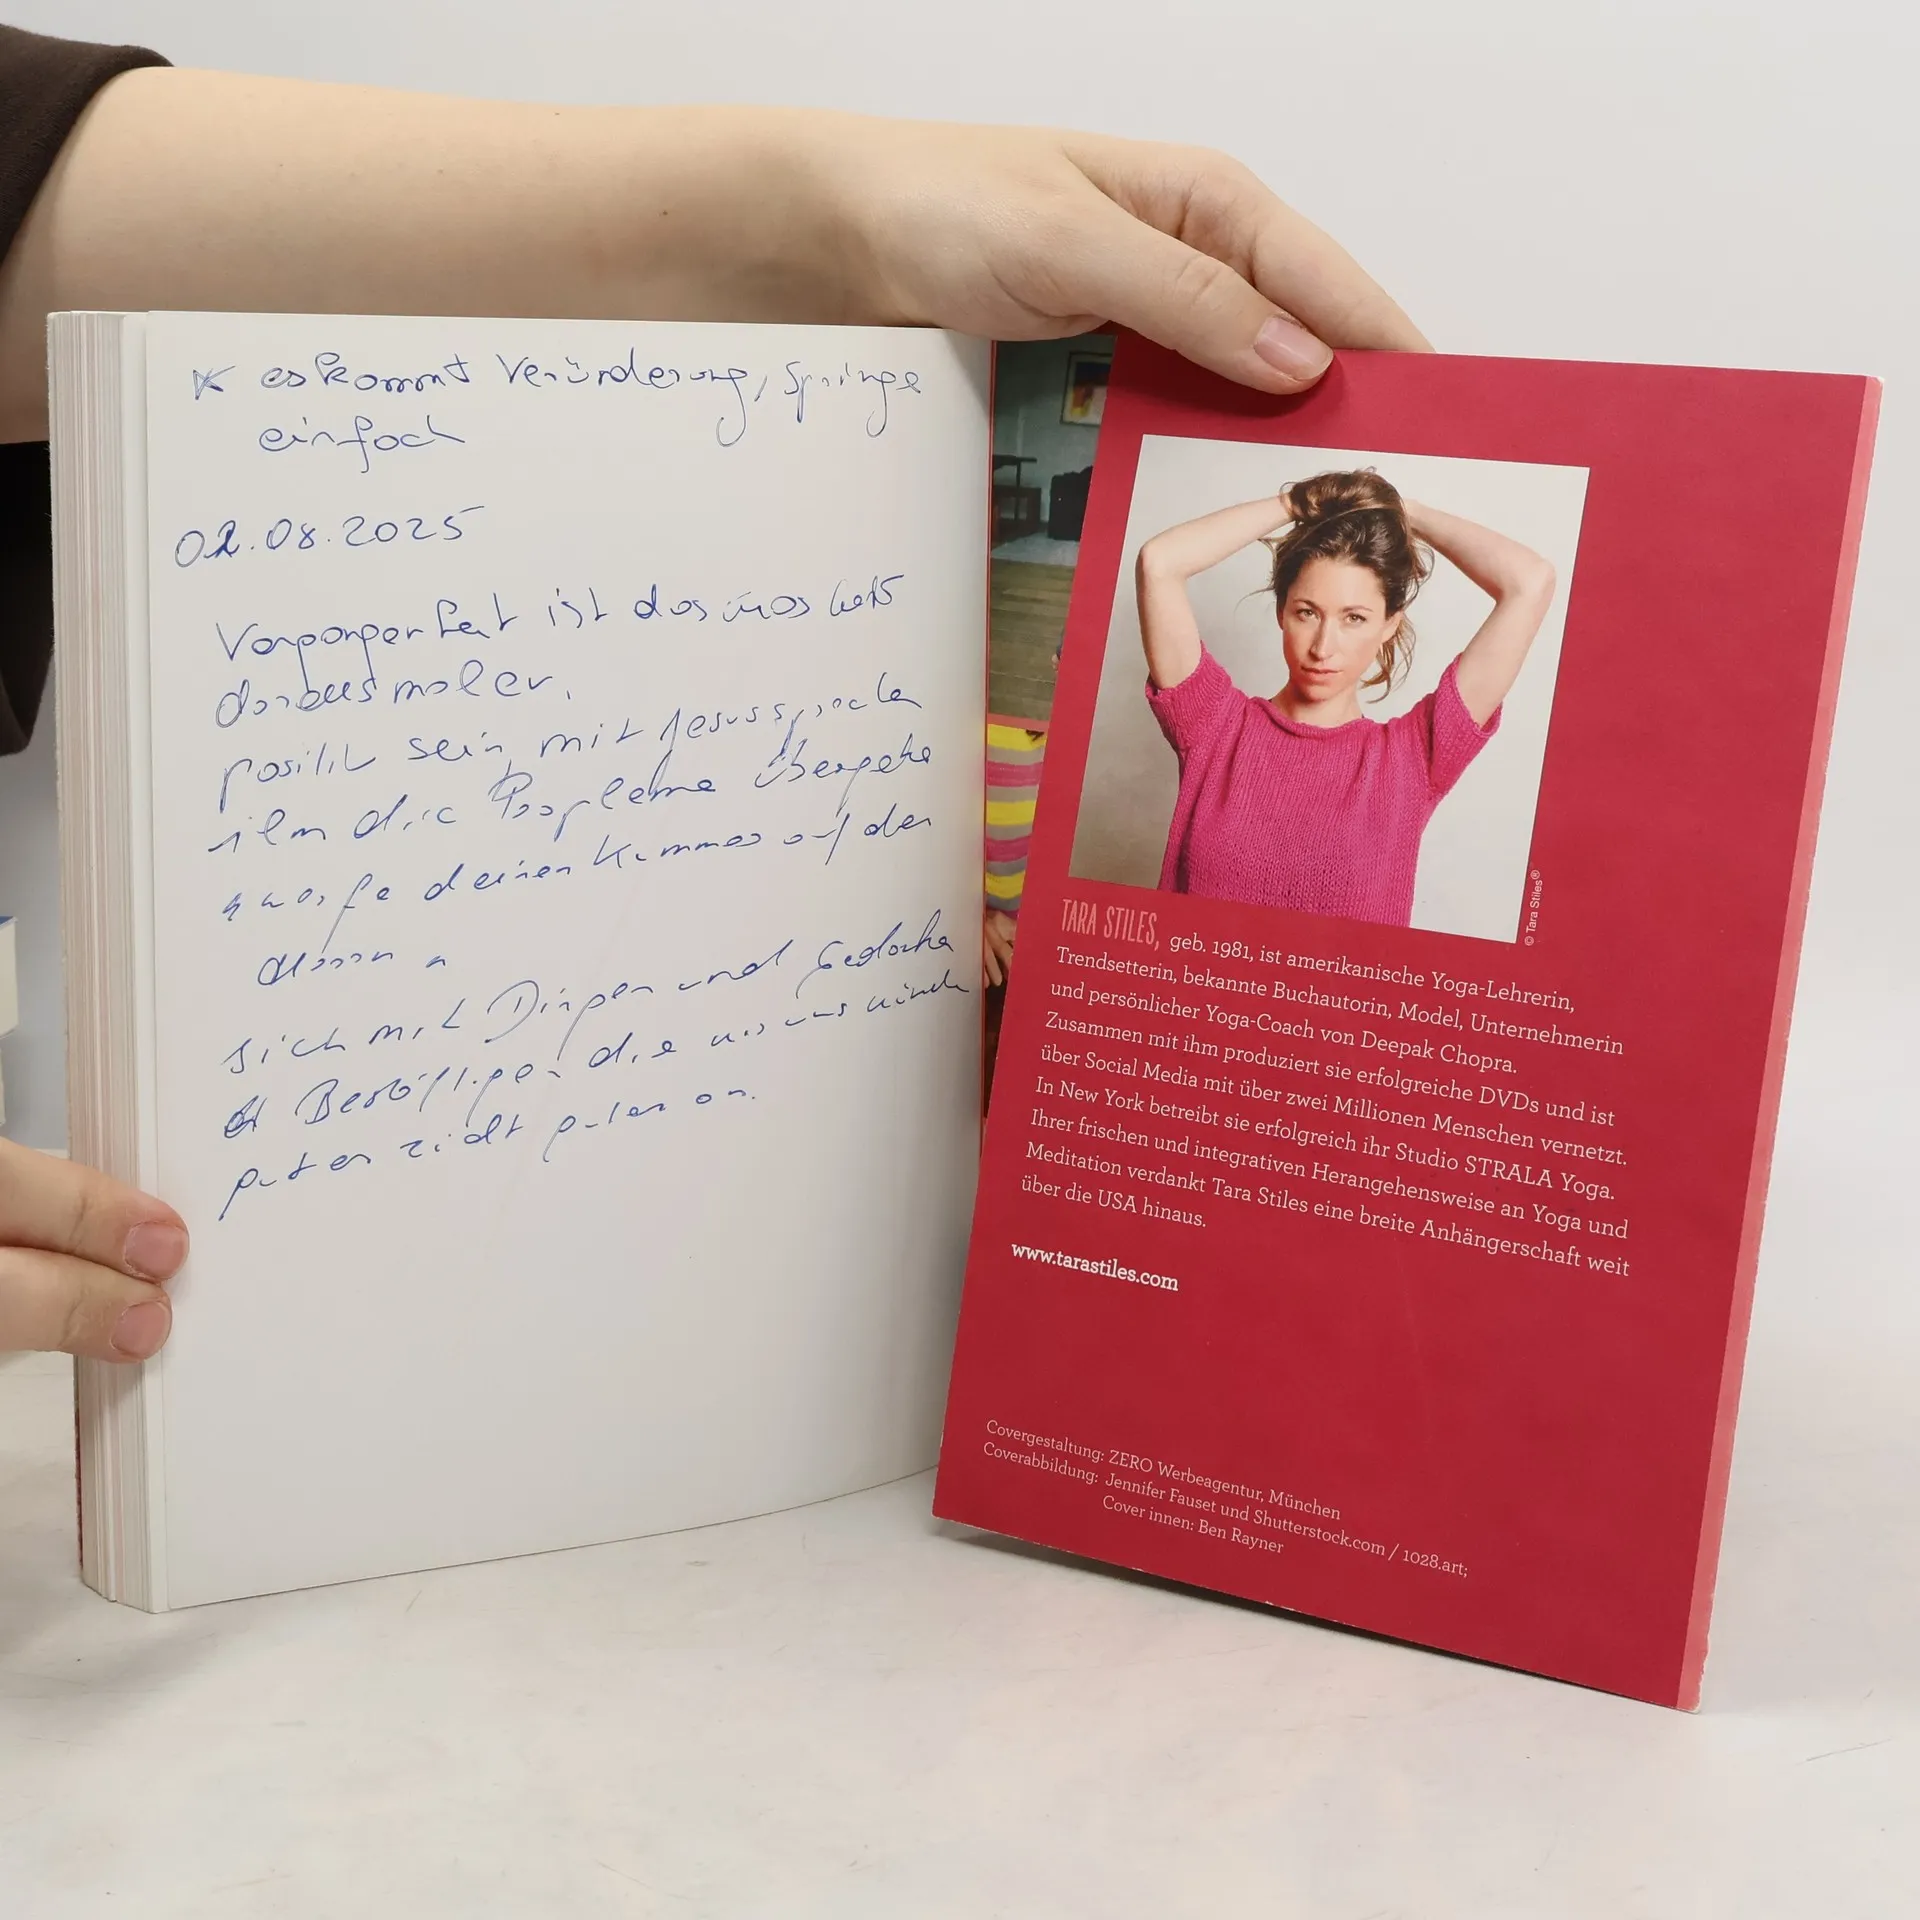 es kommt Veründerung, springe
einfach
02.08.2025
ist das was
daraus
positiv sein, mit Jesus sprachen
ihm die Probleme
deinen Kummer auf den
sich mit Dingen und
die
guten zieht guten an.
© Tara Stiles®
TARA STILES, geb. 1981, ist amerikanische Yoga-Lehrerin,
Trendsetterin, bekannte Buchautorin, Model, Unternehmerin
und persönlicher Yoga-Coach von Deepak Chopra.
Zusammen mit ihm produziert sie erfolgreiche DVDs und ist
über Social Media mit über zwei Millionen Menschen vernetzt.
In New York betreibt sie erfolgreich ihr Studio STRALA Yoga.
Ihrer frischen und integrativen Herangehensweise an Yoga und
Meditation verdankt Tara Stiles eine breite Anhängerschaft weit
über die USA hinaus.
www.tarastiles.com
Covergestaltung: ZERO Werbeagentur, München
Coverabbildung: Jennifer Fauset und Shutterstock.com / 1028.art;
Cover innen: Ben Rayner